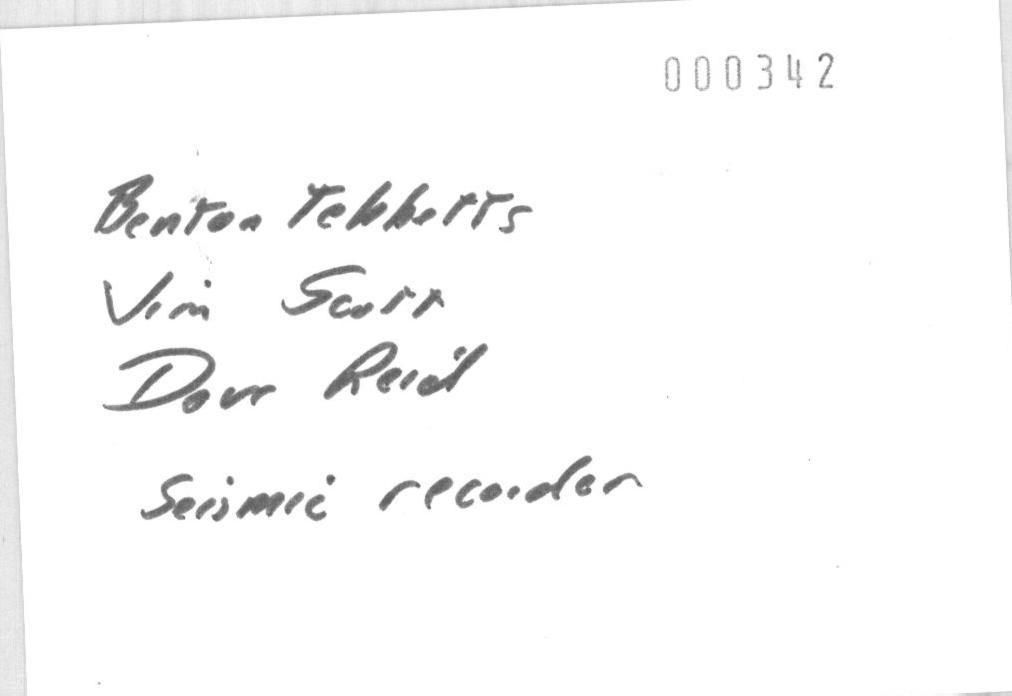 000342
Benton Tebbetts
Jim Scott
Dave Reid
Seismic recorder